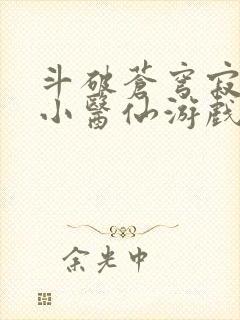 斗破蒼穹寂
小醫仙游戲
余光中